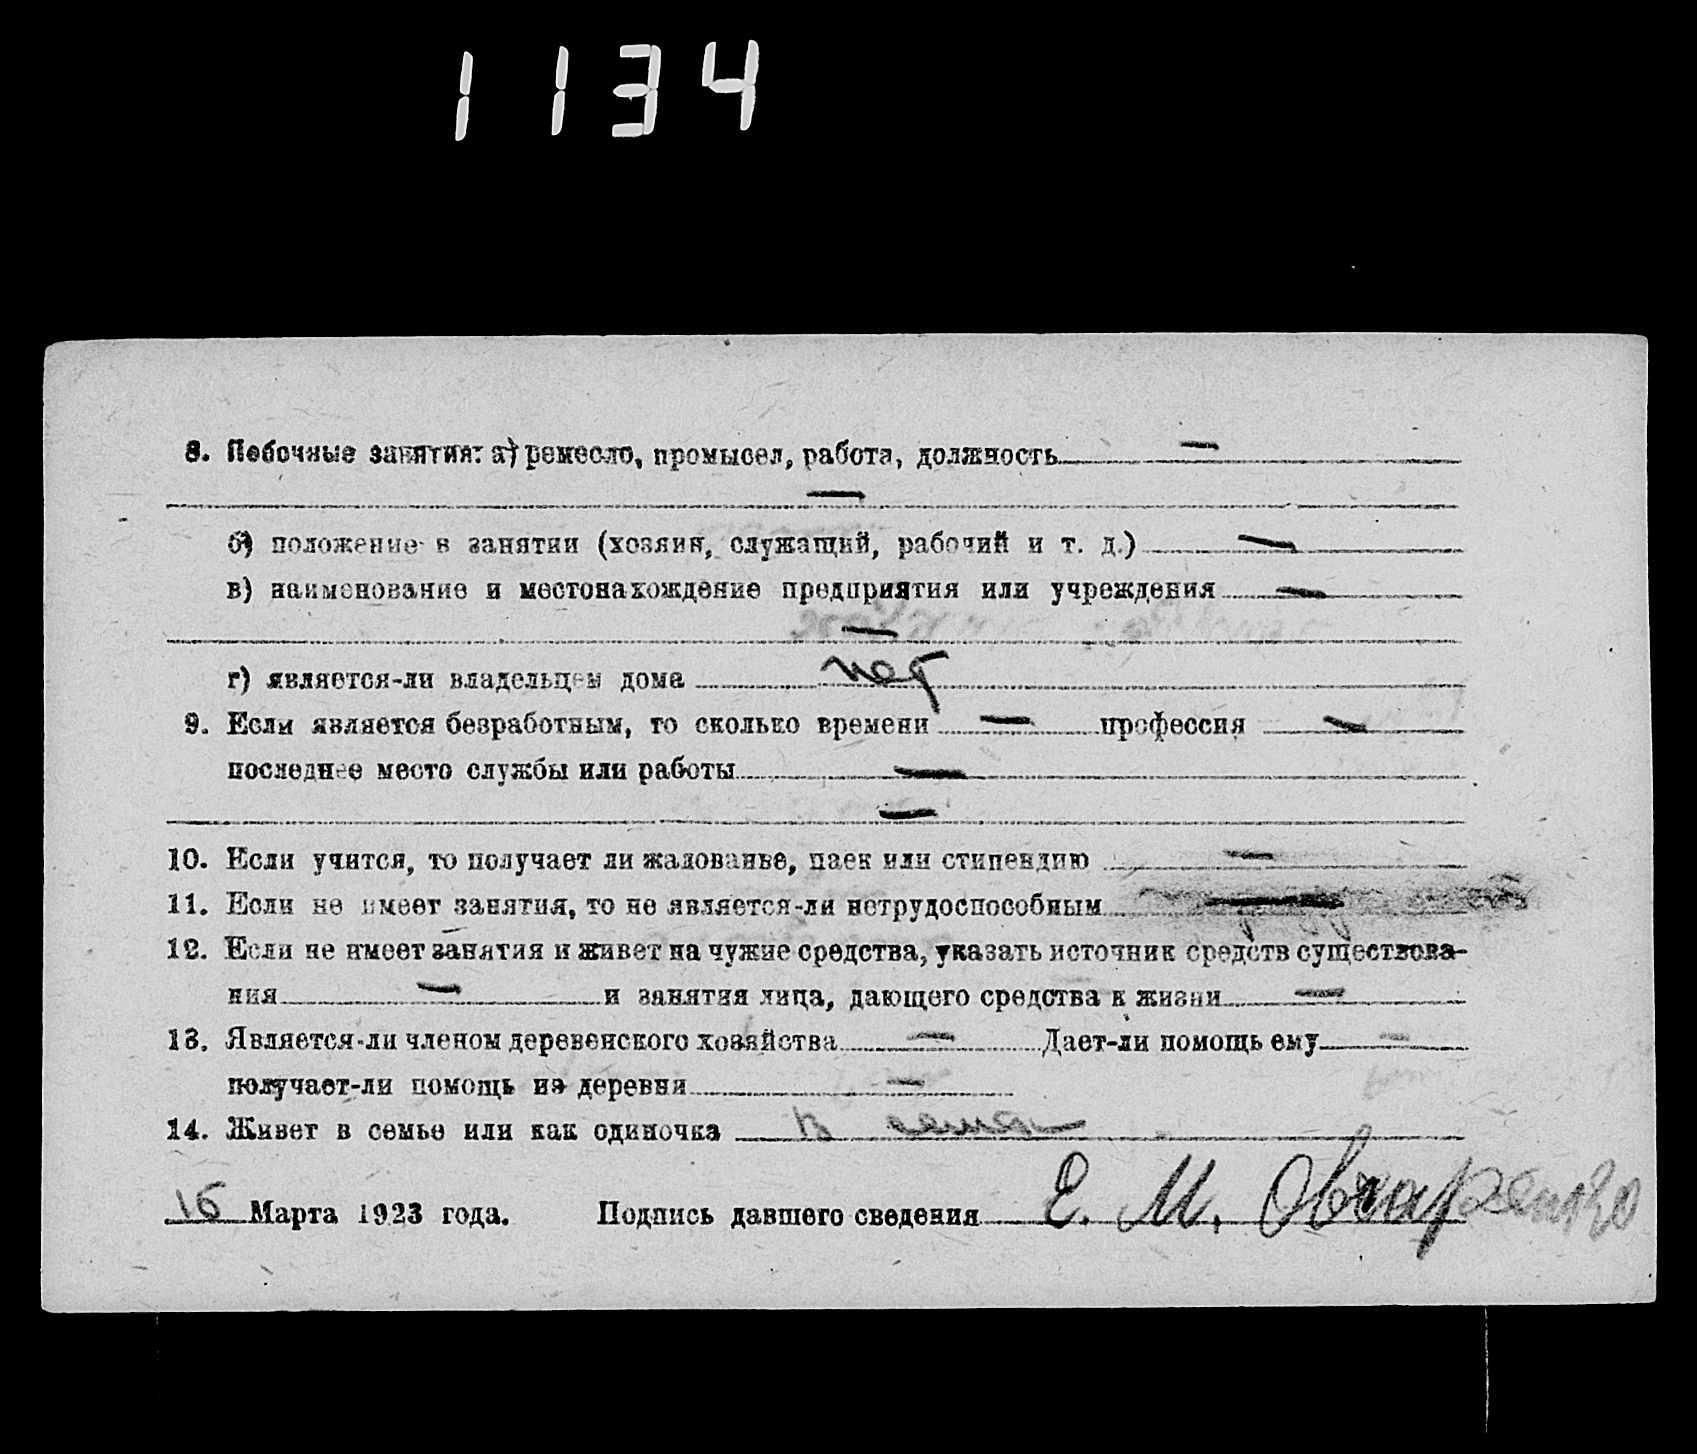 1134
8. Побочные занятия: а) ремесло, промысел, работа, должность —
—
б) положение в занятии (хозяин, служащий, рабочий и т. д.) —
в) наименование и местонахождение предприятия или учреждения —
—
г) является-ли владельцем дома нет
9. Если является безработным, то сколько времени — профессия —
последнее место службы или работы —
—
10. Если учится, то получает ли жалованье, паек или стипендию —
11. Если не имеет занятия, то не является-ли нетрудоспособным —
12. Если не имеет занятия и живет на чужие средства, указать источник средств существова-
ния — и занятия лица, дающего средства к жизни —
13. Является-ли членом деревенского хозяйства — Дает-ли помощь ему —
получает-ли помощь из деревни —
14. Живет в семье или как одиночка в семье
16 Марта 1923 года. Подпись давшего сведения Е. М. Овчаренко